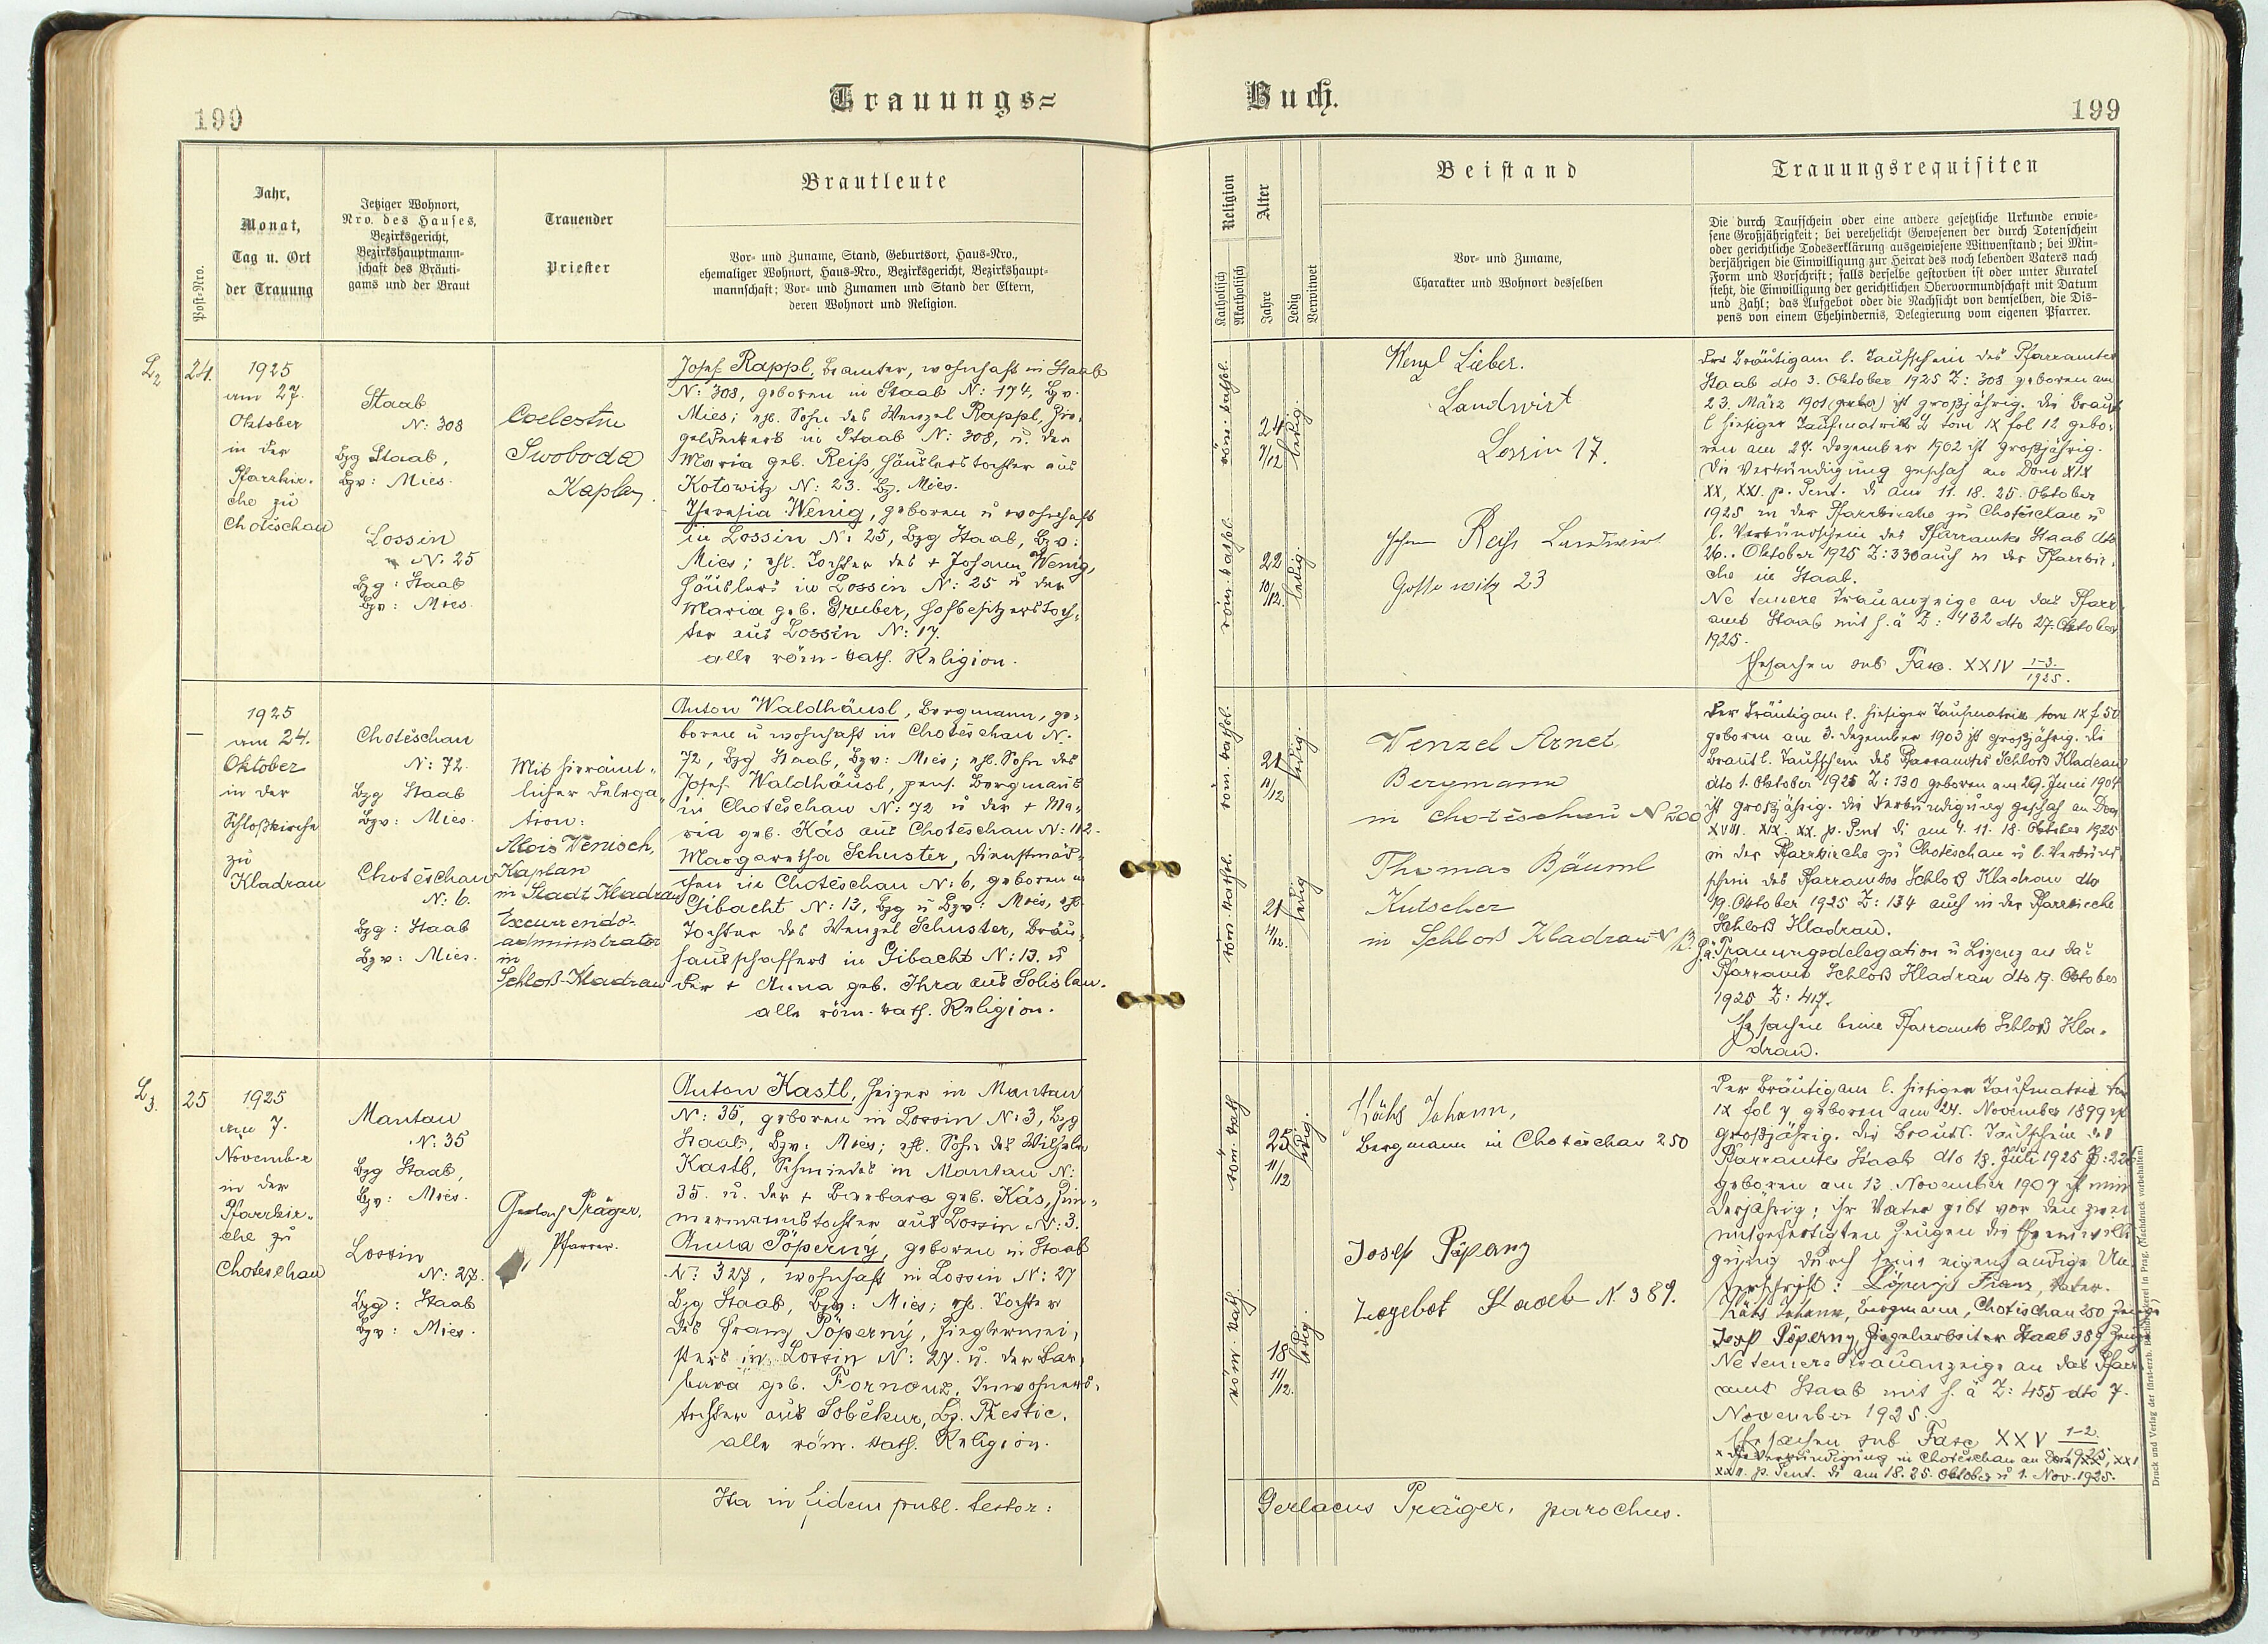 199
Trauungs=
Buch.
199
Post-Nro.
Jahr,
Monat,
Tag u. Ort
der Trauung
Jetziger Wohnort,
Nro. des Hauses,
Bezirksgericht,
Bezirkshauptmann-
schaft des Bräuti-
gams und der Braut
Trauender
Priester
Brautleute
Vor- und Zuname, Stand, Geburtsort, Haus-Nro.,
ehemaliger Wohnort, Haus-Nro., Bezirksgericht, Bezirkshaupt-
mannschaft; Vor- und Zunamen und Stand der Eltern,
deren Wohnort und Religion.
Religion
Katholisch
Akatholisch
Alter
Jahre
Ledig
Verwitwet
Beistand
Vor- und Zuname,
Charakter und Wohnort desselben
Trauungsrequisiten
Die durch Taufschein oder eine andere gesetzliche Urkunde erwie-
sene Großjährigkeit; bei verehelicht Gewesenen der durch Totenschein
oder gerichtliche Todeserklärung ausgewiesene Witwenstand; bei Min-
derjährigen die Einwilligung zur Heirat des noch lebenden Vaters nach
Form und Vorschrift; falls derselbe gestorben ist oder unter Kuratel
steht, die Einwilligung der gerichtlichen Obervormundschaft mit Datum
und Zahl; das Aufgebot oder die Nachsicht von demselben, die Dis-
pens von einem Ehehindernis, Delegierung vom eigenen Pfarrer.
L2
24.
1925
am 27.
Oktober
in der
Pfarrkir-
che zu
Chotěschau
Staab
N: 308
Bzg Staab,
Bzv: Mies.
Lossin
N: 25
Bzg: Staab
Bzv: Mies.
Coelestin
Swoboda
Kaplan
Josef Rappl, Beamter, wohnhaft in Staab
N: 308, geboren in Staab N: 174, Bzv.
Mies; ehl. Sohn des Wenzel Rappl, Zie-
geldeckers in Staab N: 308, u. der
Maria geb. Reiß, Häuslerstochter aus
Kotowitz N: 23. Bz. Mies.
Theresia Wenig, geboren u wohnhaft
in Lossin N: 25, Bzg Staab, Bzv:
Mies; ehl. Tochter des + Johann Wenig,
Häuslers in Lossin N: 25 u der
Maria geb. Gruber, Hofbesitzerstoch-
ter aus Lossin N: 17.
alle röm-kath. Religion.
röm. kathol.
24
7/12
ledig.
röm. kathol.
22
10/12.
ledig.
Wenzl Lieber.
Landwirt
Lossin 17.
Reiß Landwirt
Gottowitz 23
Der Bräutigam l. Taufschein des Pfarramtes
Staab dto 3. Oktober 1925 Z: 308 geboren am
23. März 1901 ist großjährig. Die Braut
l hiesiger Taufmatrik L tom IX fol 12 gebo-
ren am 27. Dezember 1902 ist großjährig.
Die Verkündigung geschah an Dom XIX
XX, XXI. p. Pent. d. am 11. 18. 25. Oktober
1925 in der Pfarrkirche zu Chotěschau u
l. Verkündschein des Pfarramts Staab dto
26. Oktober 1925 Z: 330 auch in der Pfarrkir-
che in Staab.
Ne temere Trauanzeige an das Pfarr-
amt Staab mit h. ä Z: 432 dto 27. Oktober
1925.
Ehesachen sub Fasc. XXIV 1-3./1925.
—
1925
am 24.
Oktober
in der
Schloßkirche
zu
Kladrau
Chotěschau
N: 72.
Bzg Staab
Bzv: Mies.
Chotěschau
N: 6.
Bzg: Staab
Bzv: Mies.
Mit hierämt-
licher Delega-
tion:
Alois Wenisch,
Kaplan
in Stadt Kladrau
Excurrendo-
administrator
in
Schloß-Kladrau
Anton Waldhäusl, Bergmann, ge-
boren u wohnhaft in Chotěschau N.
72, Bzg Staab, Bzv: Mies; ehl. Sohn des
Josef Waldhäusl, pens. Bergmanns
in Chotěschau N: 72 u der + Ma-
ria geb. Käs aus Chotěschau N: 112.
Margaretha Schuster, Dienstmäd-
chen in Chotěschau N: 6, geboren in
Gibacht N: 13, Bzg u Bzv: Mies, ehl.
Tochter des Wenzel Schuster, Bräu-
hausschaffers in Gibacht N: 13. u
der + Anna geb. Ihra aus Solislau.
alle röm. kath. Religion.
röm. kathol.
21
11/12
ledig.
röm. kathol.
21
4/12.
ledig
Wenzel Arnet
Bergmann
in Chotěschau N 200
Thomas Bäuml
Kutscher
in Schloß Kladrau
Der Bräutigam l. hiesiger Taufmatrik tom IX f 50
geboren am 3. Dezember 1903 ist großjährig. Die
Braut l. Taufschein des Pfarramtes Schloß Kladrau
dto 1. Oktober 1925 Z: 130 geboren am 29. Juni 1904
ist großjährig. Die Verkündigung geschah an Dom
XVIII. XIX. XX. p. Pent d. am 4. 11. 18. Oktober 1925
in der Pfarrkirche zu Chotěschau u l. Verkünd-
schein des Pfarramtes Schloß Kladrau dto
19. Oktober 1925 Z: 134 auch in der Pfarrkirche
Schloß Kladrau.
h. ä. Trauungsdelegation u Lizenz an das
Pfarramt Schloß Kladrau dto 19. Oktober
1925 Z: 417.
Ehesachen beim Pfarramte Schloß Kla-
drau.
L3.
25
1925
am 7.
November
in der
Pfarrkir-
che zu
Choteschau
Mantau
N: 35
Bzg Staab,
Bzv: Mies.
Lossin
N: 27.
Bzg: Staab
Bzv: Mies.
Gerlach Präger,
Pfarrer.
Anton Kastl, Heizer in Mantau
N: 35, geboren in Lossin N: 3, Bzg
Staab, Bzv: Mies; ehl. Sohn des Wilhelm
Kastl, Schmiedes in Mantau N:
35. u. der + Barbara geb. Käs, Zim-
mermannstochter aus Lossin N: 3.
Anna Pöperný, geboren in Staab
N: 327, wohnhaft in Lossin N: 27
Bzg Staab, Bzv: Mies; ehl. Tochter
des Franz Pöperný, Zieglermei-
sters in Lossin N: 27. u. der Bar-
bara geb. Fornouz, Inwohners-
tochter aus Soběkur, Bz. Přestic.
alle röm. kath. Religion.
röm. kath
25
11/12
ledig.
röm. kath
18
11/12.
ledig.
Käts Johann,
Bergmann in Choteschau 250
Josef Pöperny
Staab N 389.
Der Bräutigam l. hiesiger Taufmatrik tom
IX fol 7 geboren am 24. November 1899 ist
großjährig. Die Braut l. Taufschein des
Pfarramtes Staab dto 18. Juli 1925
geboren am 13. November 1907 ist min-
derjährig; ihr Vater gibt vor den zwei
mitgefertigten Zeugen die Eheeinwilli-
gung durch seine eigenhändige Un-
terschrift: Pöperný Franz, Vater.
Käts Johann, Bergmann, Chotischau 250 Zeuge
Josef Pöperny, Ziegelarbeiter Staab 389 Zeuge
Ne temere Trauanzeige an das Pfarr-
amt Staab mit h. ä Z: 455 dto 7.
November 1925.
Ehesachen sub Fasc XXV 1-2./1925.
x Die Verkündigung in Choteschau an Dom XX, XXI
XXII. p. Pent. d. am 18. 25. Oktober u 1. Nov. 1925.
Ita in fidem publ. testor:
Gerlacus Präger, parochus.
Druck und Verlag der fürst-erzb. Buchdruckerei in Prag. (Nachdruck vorbehalten)